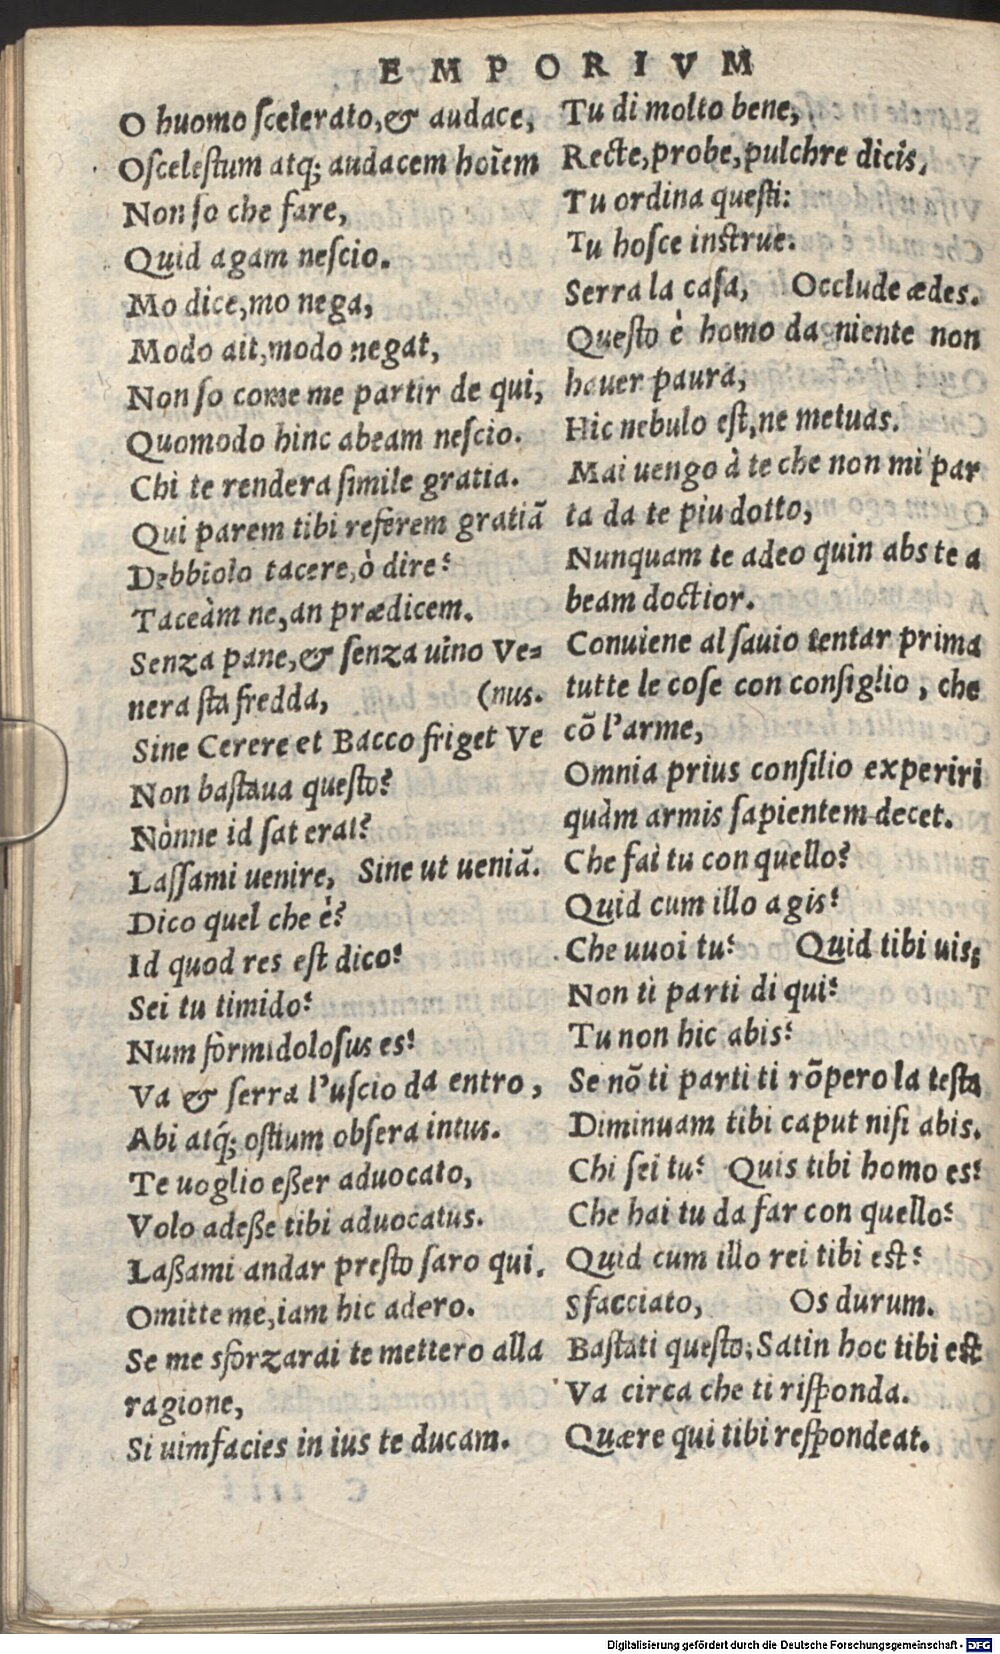 EMPORIVM
O huomo ſcelerato,& audace,
Oſceleſtum atq; audacem hoı̃em
Non ſo che fare,
Quid agam neſcio.
Mo dice,mo nega,
Modo ait,modo negat,
Non ſo come me partir de qui,
Quomodo hinc abeam neſcio.
Chi te rendera ſimile gratia.
Qui parem tibi referem gratiã
Debbiolo tacere,ò dire?
Taceàm ne,an prædicem.
Senza pane,& ſenza uino Ve=
nera ſta fredda, (nus.
Sine Cerere et Bacco friget Ve
Non baſtaua queſto?
Nònne id ſat erat?
Laſſami uenire, Sine ut ueniã.
Dico quel che è?
Id quod res eſt dico?
Sei tu timido?
Num fòrmidoloſus es?
Va & ſerra l'uſcio da entro,
Abi atq́; oſtium obſera intus.
Te uoglio eßer aduocato,
Volo adeße tibi aduocatus.
Laßami andar preſto ſaro qui.
Omitte me,iam hic adero.
Se me sforzarai te mettero alla
ragione,
Si uim facies in ius te ducam.
Tu di molto bene,
Recte,probe,pulchre dicis,
Tu ordina queſti:
Tu hoſce inſtrue.
Serra la caſa, Occlude ædes.
Queſto è homo da niente non
hauer paura,
Hic nebulo eſt,ne metuas.
Mai uengo à te che non mi par
ta da te piu dotto,
Nunquam te adeo quin abs te a
beam doctior.
Conuiene al ſauio tentar prima
tutte le coſe con conſiglio, che
cõ l'arme,
Omnia prius conſilio experiri
quàm armis ſapientem decet.
Che fai tu con quello?
Quid cum illo agis?
Che uuoi tu? Quid tibi uis;
Non ti parti di qui?
Tu non hic abis?
Se nõ ti parti ti rõpero la teſta
Diminuam tibi caput niſi abis.
Chi ſei tu? Quis tibi homo es?
Che hai tu da far con quello?
Quid cum illo rei tibi eſt?
Sfacciato, Os durum.
Baſtati queſto; Satin hoc tibi eſt
Va circa che ti riſponda.
Quære qui tibi reſpondeat.
Digitalisierung gefördert durch die Deutsche Forschungsgemeinschaft - DFG